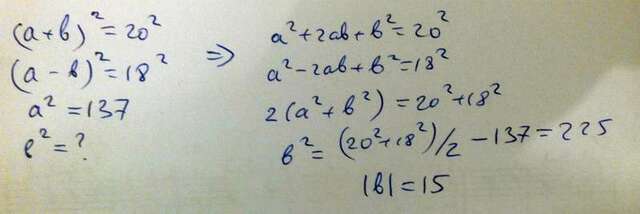 (a+b)²=20²
(a-b)²=18²
a²=137
b²=?
=>
a²+2ab+b²=20²
a²-2ab+b²=18²
2(a²+b²)=20²+18²
b²=(20²+18²)/2-137=225
|b|=15